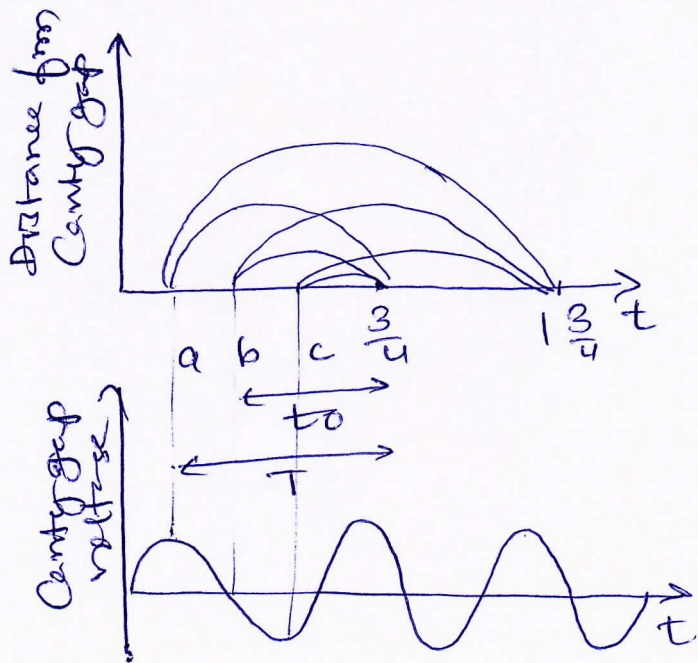 Distance from
Cavity gap
a b c 3/4 1 3/4 t
to
T
Cavity gap
voltage
t